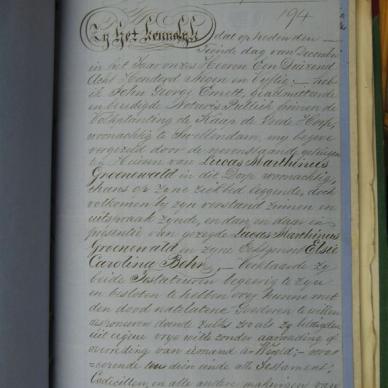 194
Zy Het Kennelyk dat op heden den
Tiende dag van December
in het Jaar onzes Heeren Een Duizend
Acht Honderd Negen en Vyftig; heb
ik John George Emett, geadmitteerde
en beëdigde Notaris Publiek binnen de
Volkplanting de Kaap de Goede Hoop,
woonachtig te Swellendam, my begeven
vergezeld door de nevenstaande getuigen
ten Huizen van Lucas Marthinus
Groenewald in dit Dorp woonachtig,
thans op zyne ziekbed leggende, doch
volkomen by zyn verstand zinnen en
uitspraak zynde, en dan en daar in
presentie van gezegde Lucas Marthinus
Groenewald en zyne Echtgenoot Elsie
Carolina Behr, Verklaarde zy
beide Testateuren begeerig te zyn
en besloten te hebben over hunne met
den dood natelatene Goederen te willen
disponeeren doende zulks zoo als zy betuigden
uit eigene vrye wil zonder aanrading of
overreding van iemand ter Wereld;
dien einde alle Testament,
Codicillen en alle andere makingen van